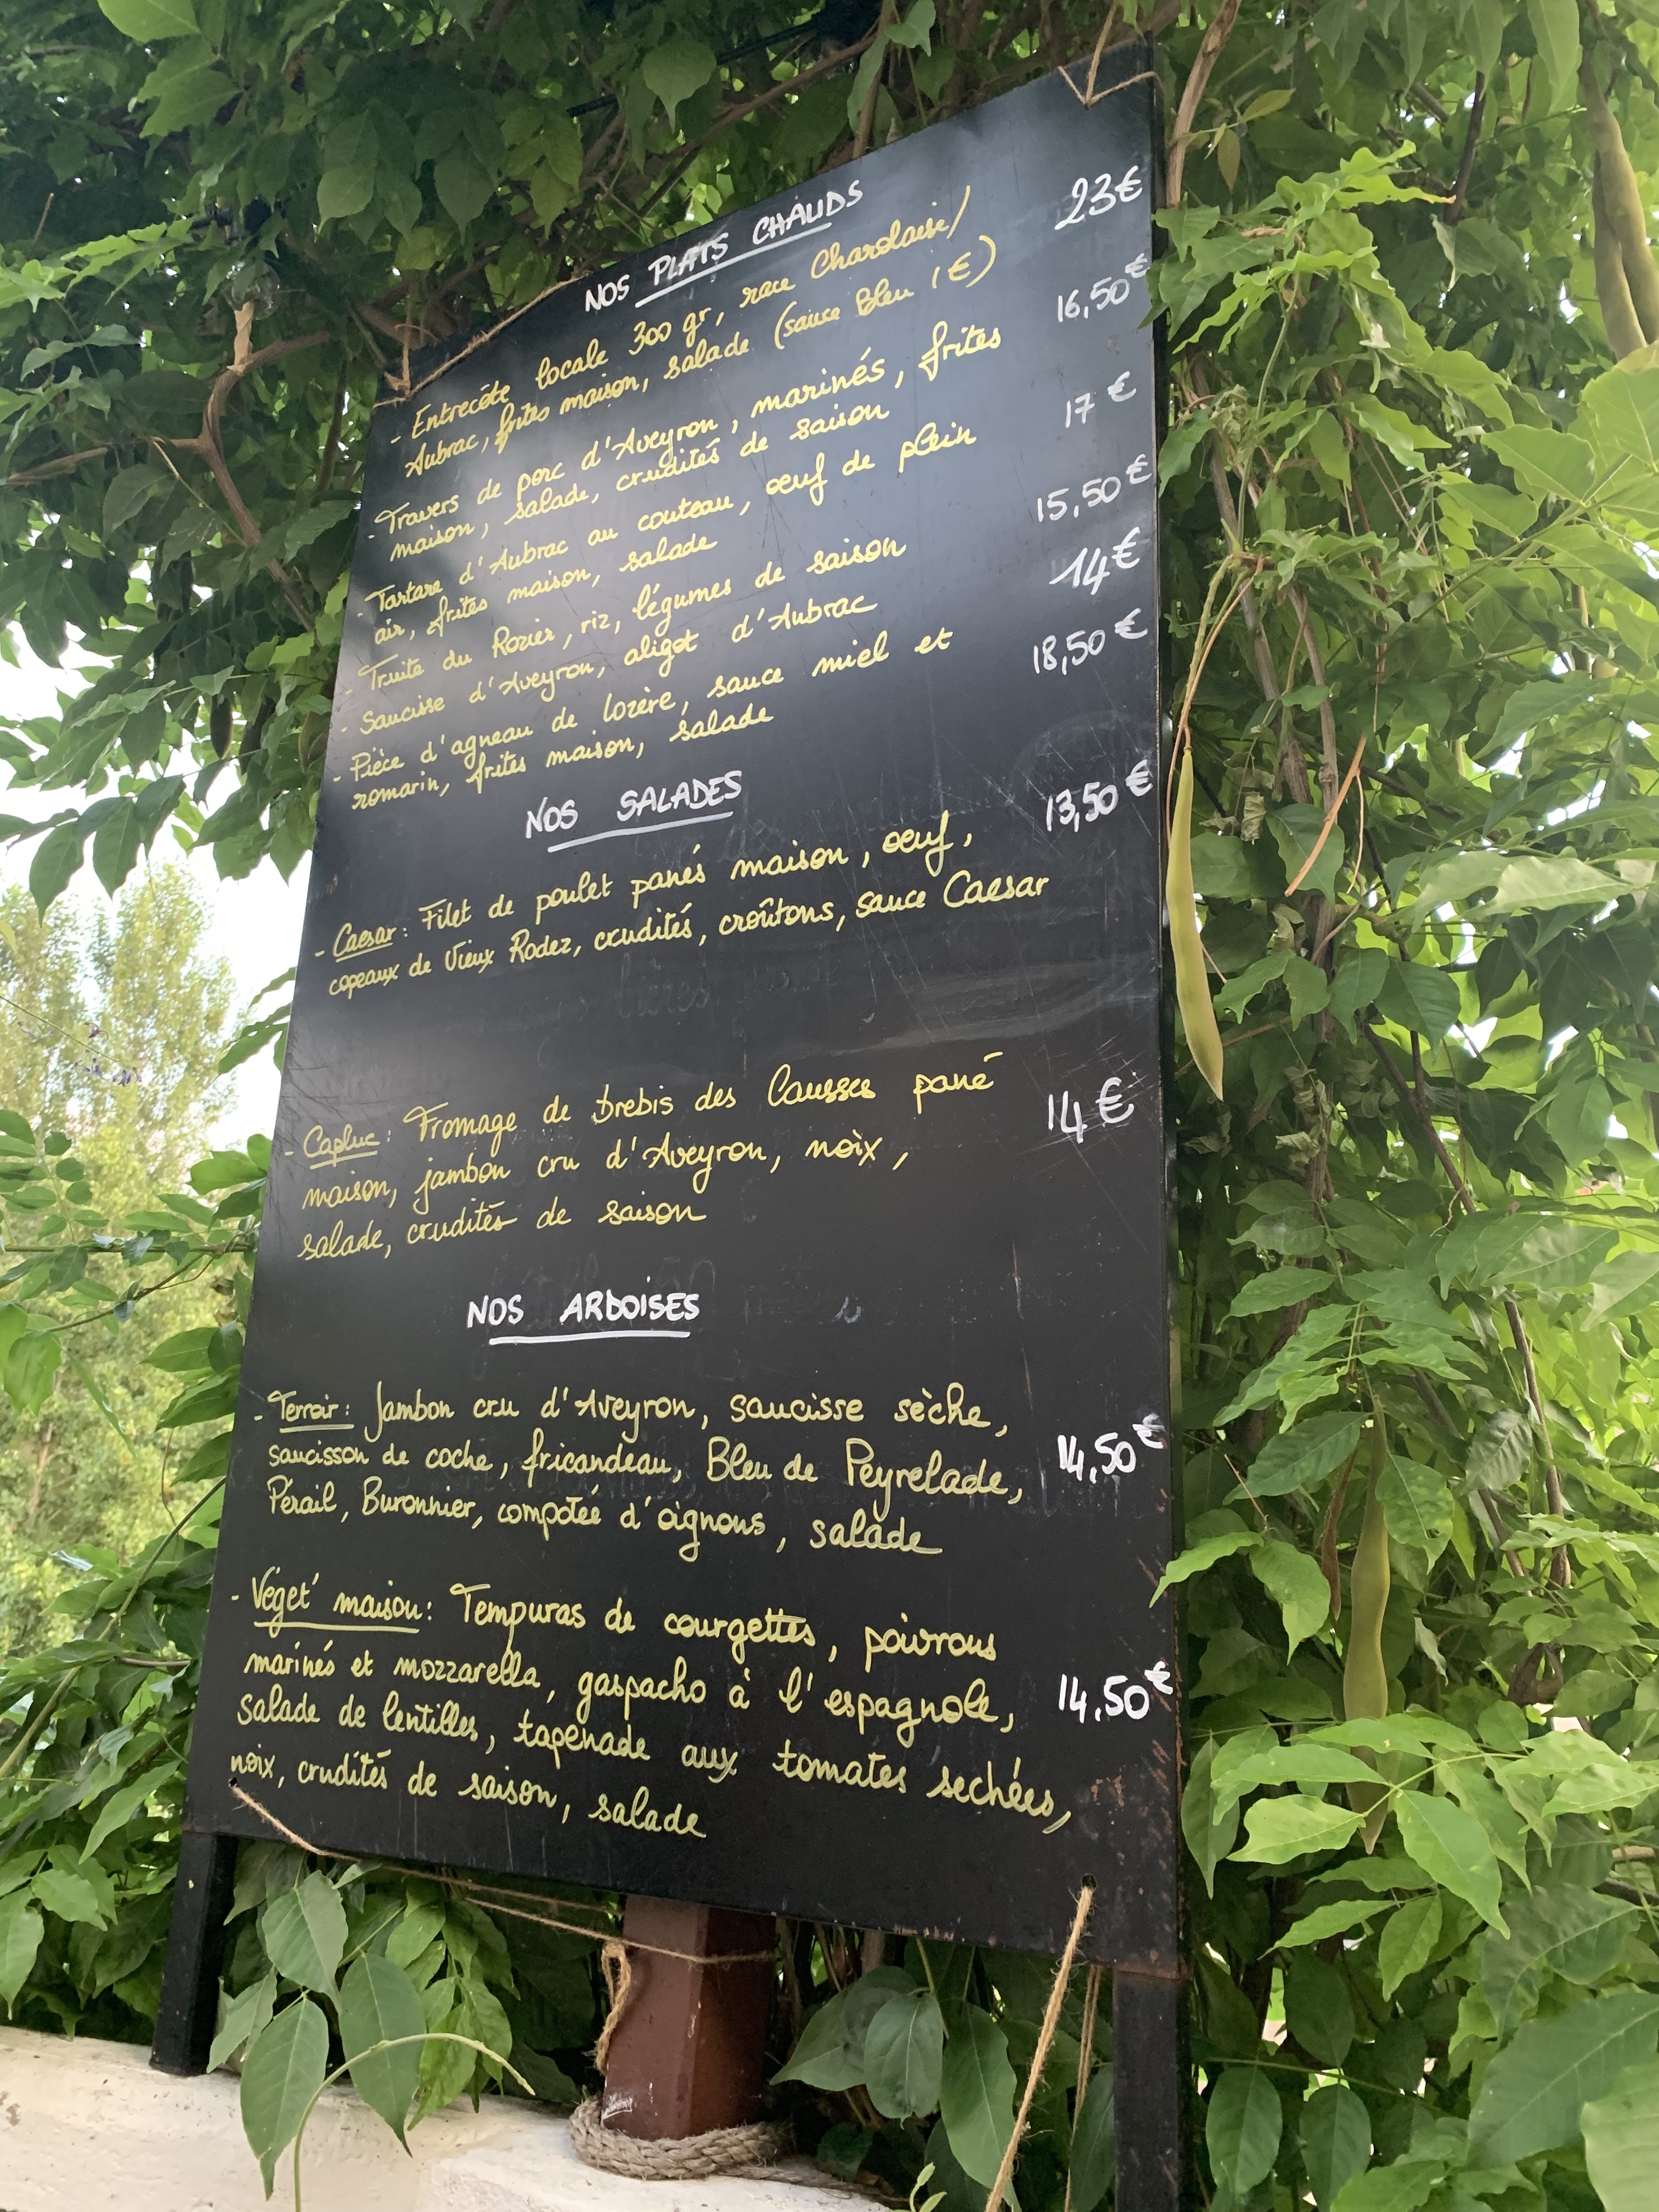 NOS PLATS CHAUDS
- Entrecôte locale 300 gr, race Charolaise/ 23€
Aubrac, frites maison, salade (sauce Bleu 1€)
- Travers de porc d'Aveyron, marinés, frites 16,50€
maison, salade, crudités de saison
- Tartare d'Aubrac au couteau, oeuf de plein 17€
air, frites maison, salade
- Truite du Rozier, riz, légumes de saison 15,50€
- Saucisse d'Aveyron, aligot d'Aubrac 14€
- Pièce d'agneau de lozère, sauce miel et 18,50€
romarin, frites maison, salade
NOS SALADES
- Caesar: Filet de poulet panés maison, oeuf, 13,50€
copeaux de Vieux Rodez, crudités, croûtons, sauce Caesar
- Capluc: Fromage de brebis des Causses pané 14€
maison, jambon cru d'Aveyron, noix,
salade, crudités de saison
NOS ARDOISES
- Terroir: Jambon cru d'Aveyron, saucisse sèche,
saucisson de coche, fricandeau, Bleu de Peyrelade, 14,50€
Pérail, Buronnier, compotée d'oignons, salade
- Véget' maison: Tempuras de courgettes, poivrons
marinés et mozzarella, gaspacho à l'espagnole, 14,50€
salade de lentilles, tapenade aux tomates sechées,
noix, crudités de saison, salade